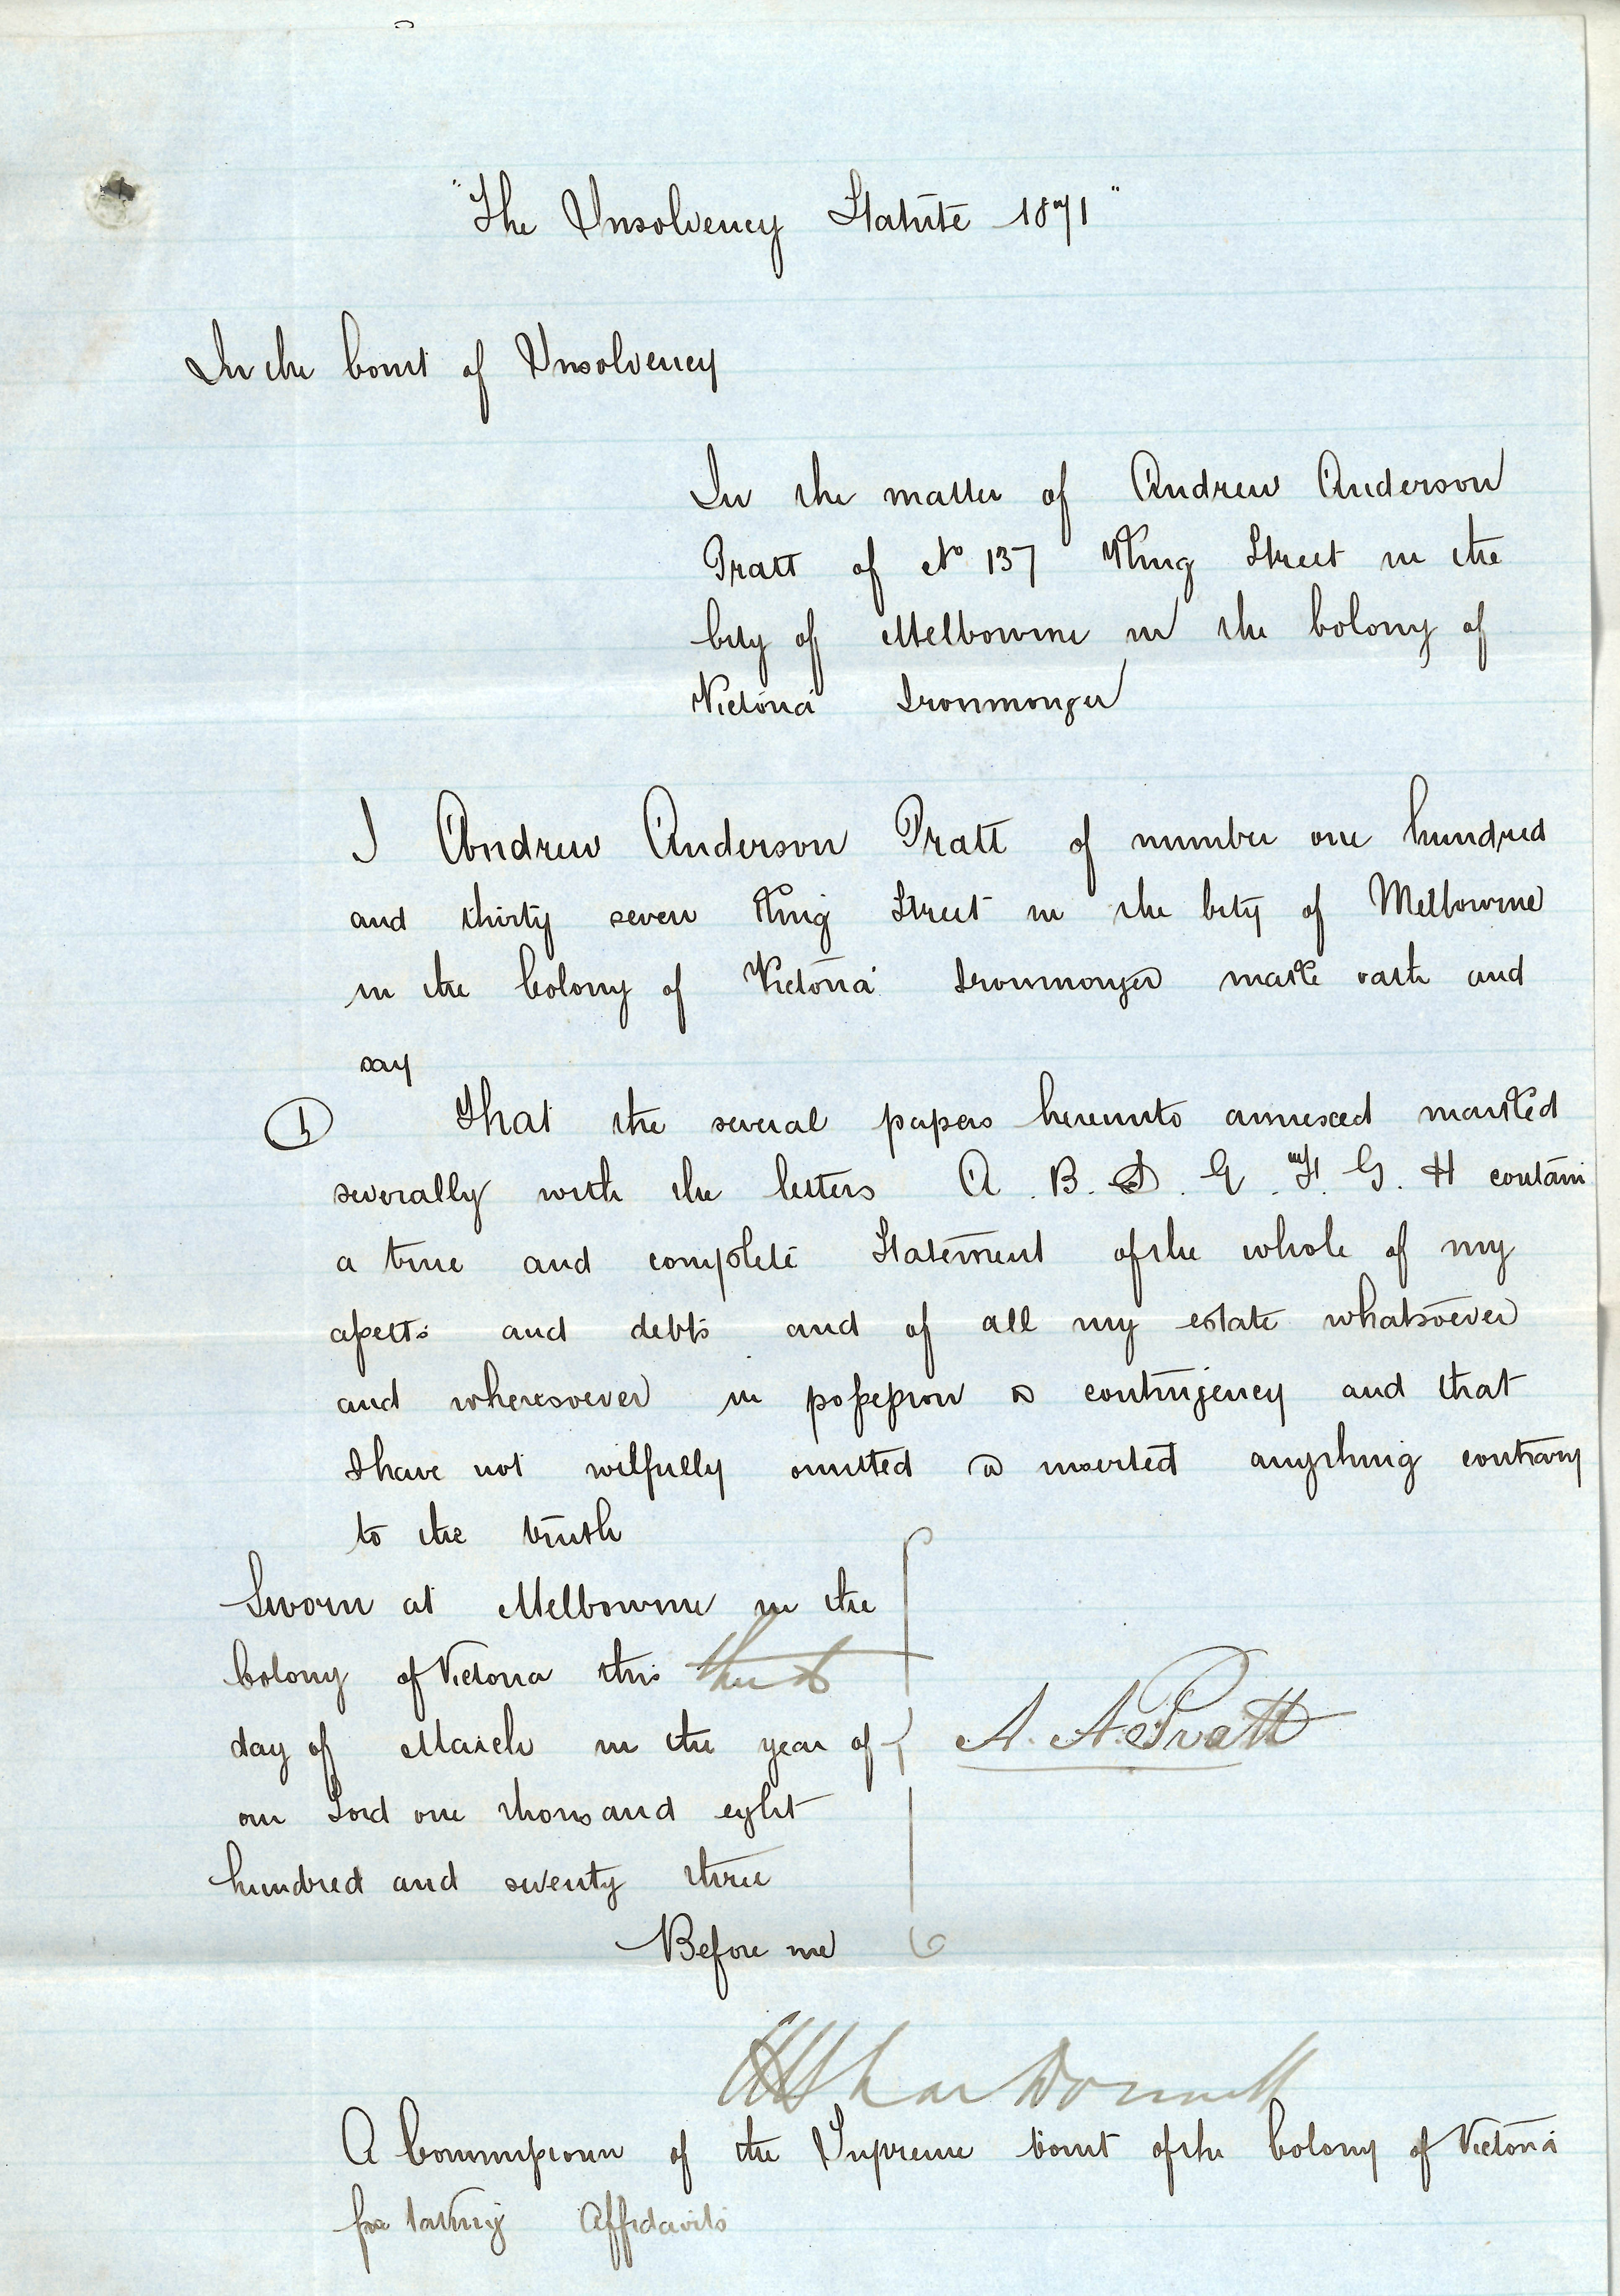 "The Insolvency Statute 1871"
In the Court of Insolvency
In the matter of Andrew Anderson
Pratt of No 137 King Street in the
City of Melbourne in the Colony of
Victoria Ironmonger
I Andrew Anderson Pratt of number one hundred
and thirty seven King Street in the City of Melbourne
in the Colony of Victoria Ironmonger make oath and
say
1 That the several papers hereunto annexed marked
severally with the letters A. B. D. E. F. G. H contain
a true and complete Statement of the whole of my
assetts and debts and of all my estate whatsoever
and wheresoever in possession or contingency and that
I have not wilfully omitted or inserted anything contrary
to the truth
Sworn at Melbourne in the
Colony of Victoria this
day of March in the year of
our Lord one thousand eight
hundred and seventy three
A. A. Pratt
Before me
A Commissioner of the Supreme Court of the Colony of Victoria
for taking Affidavits